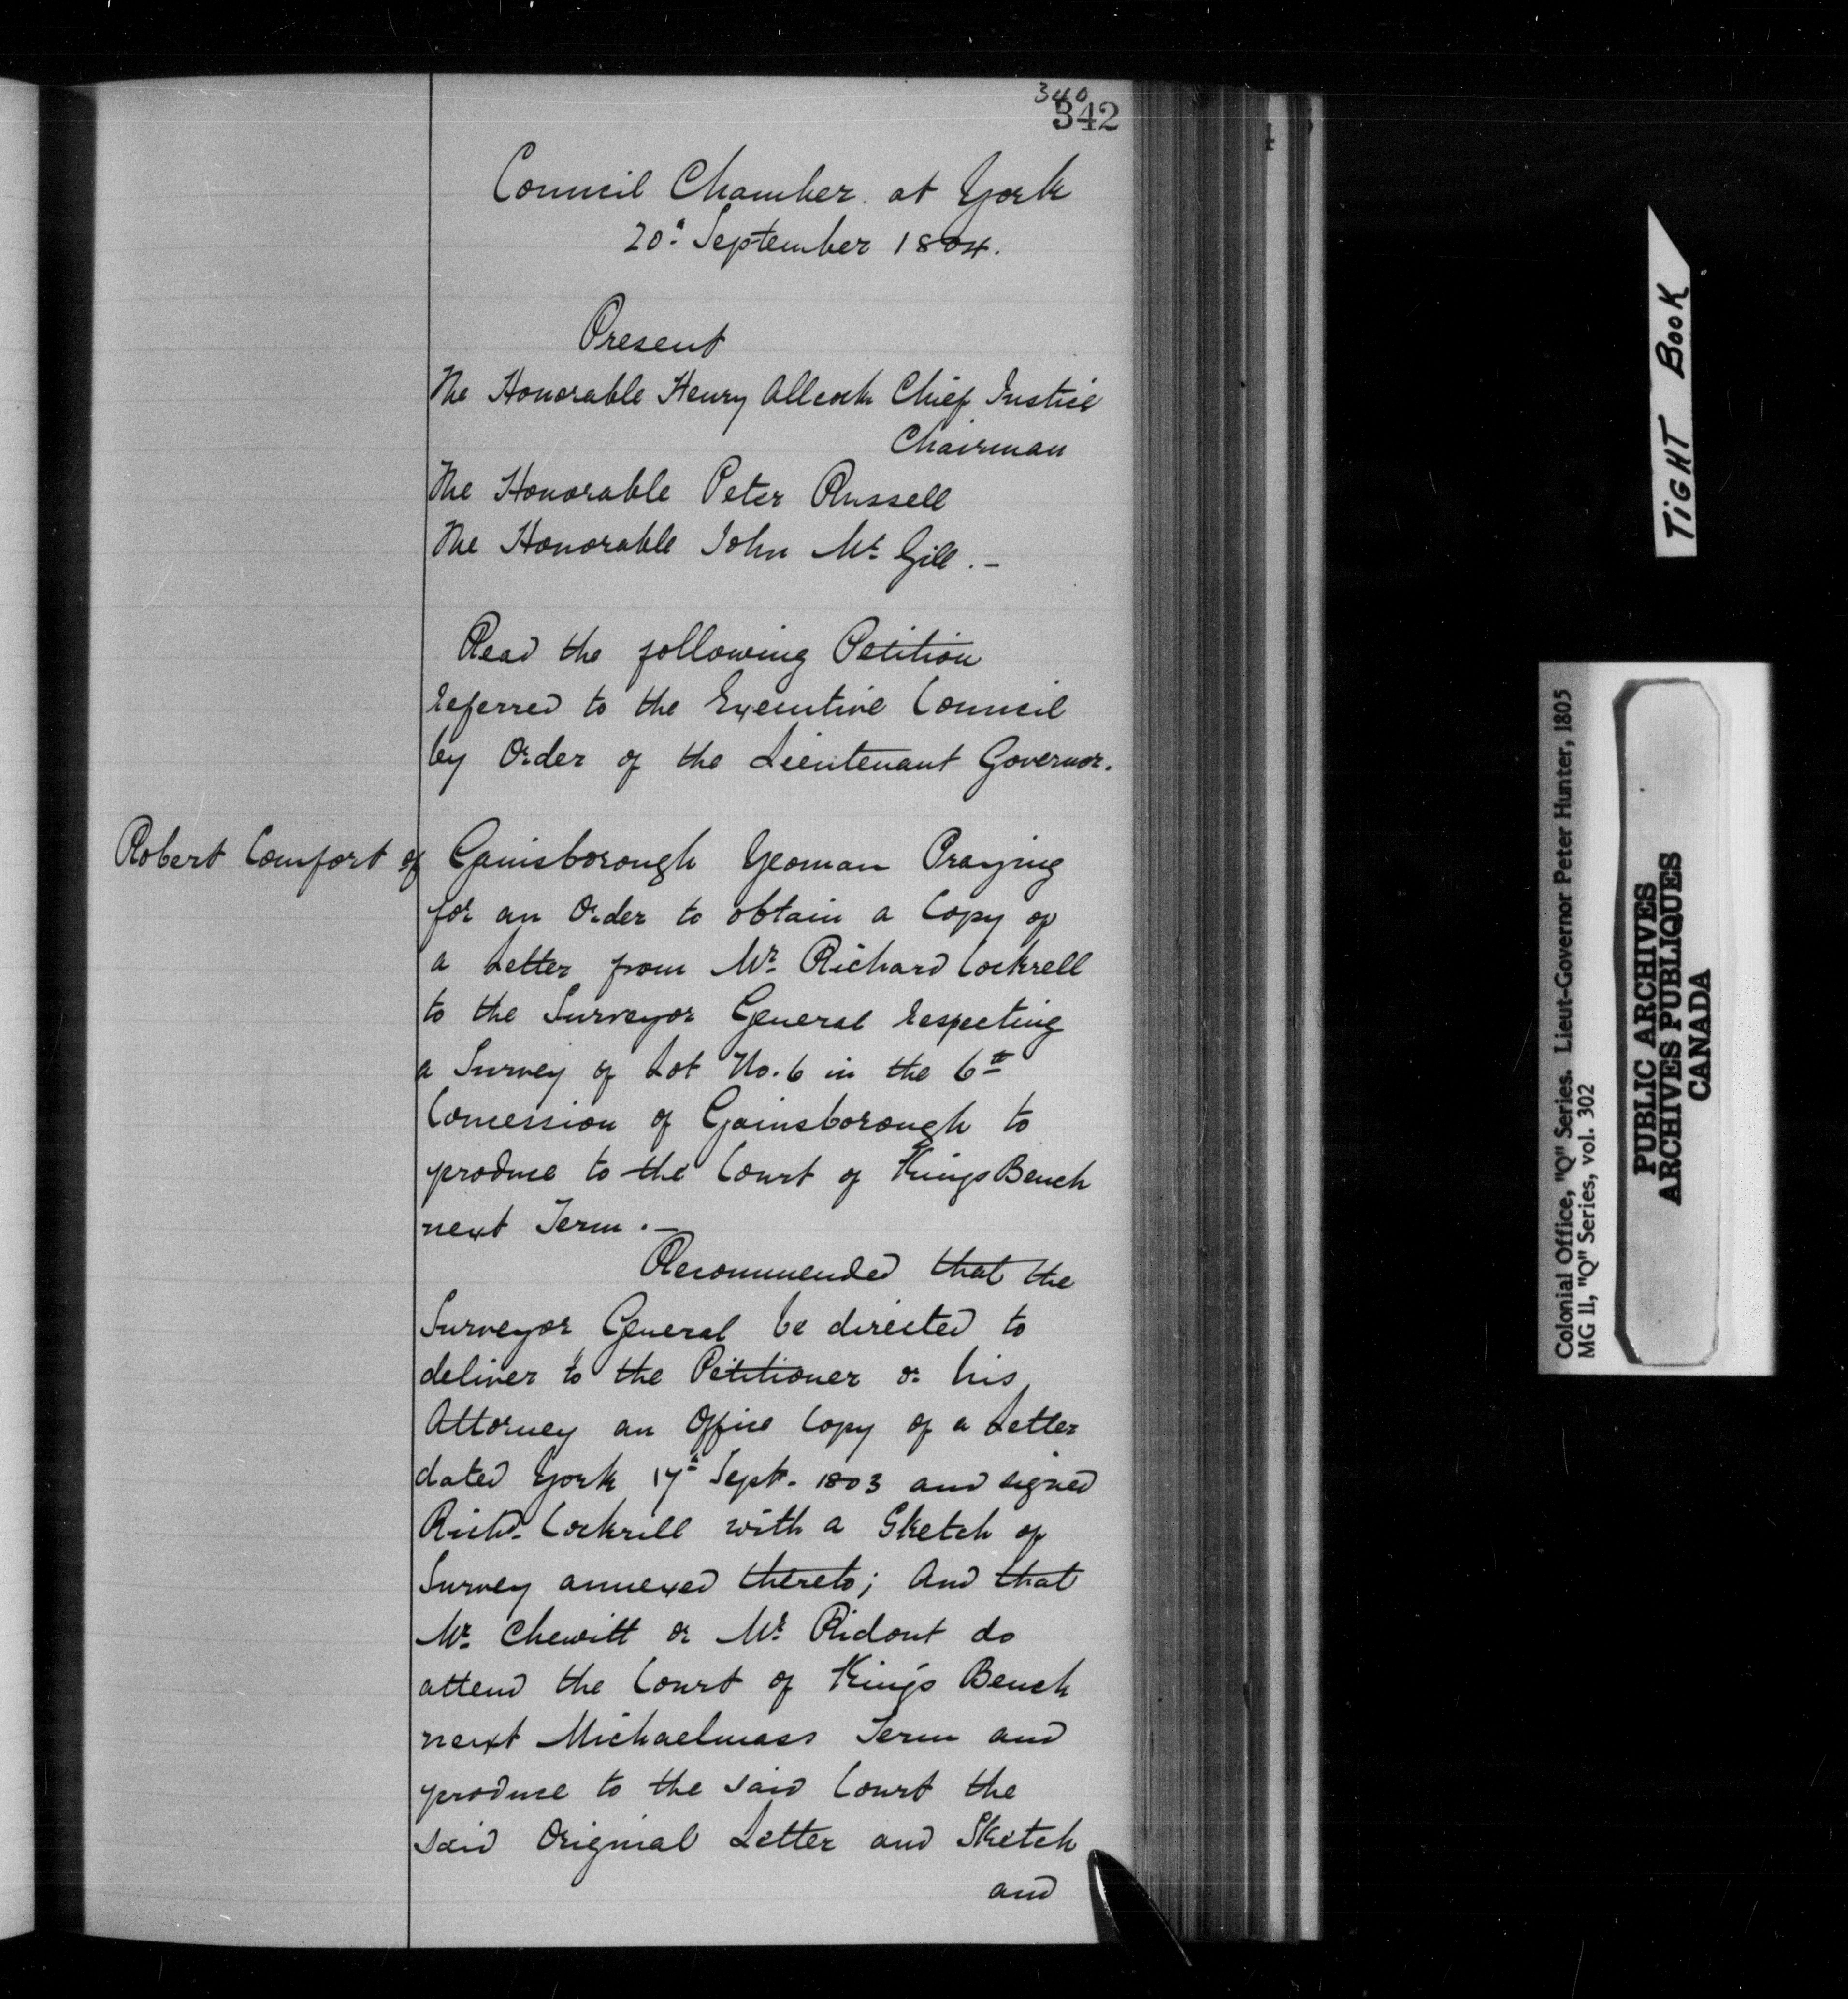 340
342
Council Chamber at York
20th September 1804.
Present
The Honorable Henry Allcock Chief Justice
Chairman
The Honorable Peter Russell
The Honorable John Mc Gill.-
Read the following Petition
referred to the Executive Council
by Order of the Lieutenant Governor.
Robert Comfort of Gainsborough Yeoman Praying
for an Order to obtain a Copy of
a Letter from Mr. Richard Cockrell
to the Surveyor General respecting
a Survey of Lot No. 6 in the 6th
Concession of Gainsborough to
produce to the Court of Kings Bench
next Term.-
Recommended that the
Surveyor General be directed to
deliver to the Petitioner or his
Attorney an Office Copy of a Letter
dated York 17th Sept. 1803 and signed
Richd. Cockrill with a Sketch of
Survey annexed thereto; And that
Mr. Chewitt or Mr. Ridout do
attend the Court of King's Bench
next Michaelmass Term and
produce to the said Court the
said Original Letter and Sketch
and
TIGHT BOOK
Colonial Office, "Q" Series. Lieut-Governor Peter Hunter, 1805
MG 11, "Q" Series, vol. 302
PUBLIC ARCHIVES
ARCHIVES PUBLIQUES
CANADA